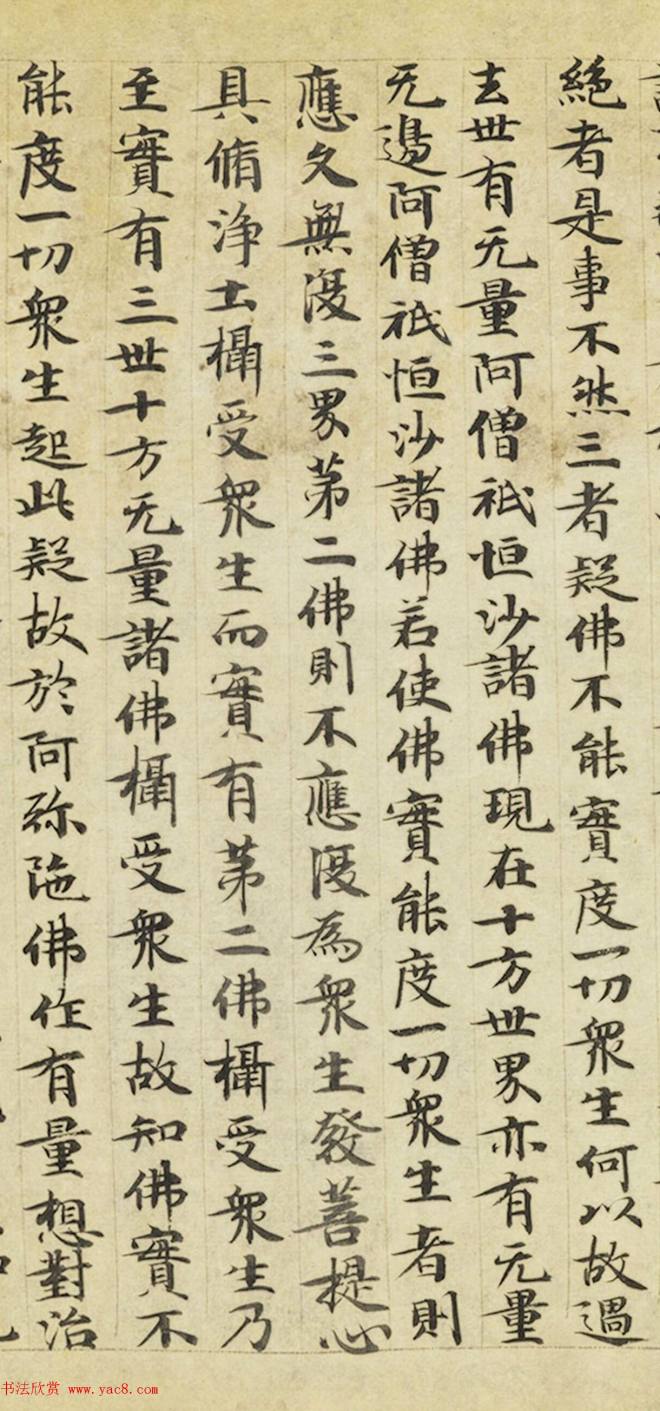 絕者是事不然三者疑佛不能實度一切衆生何以故過
去世有无量阿僧祇恒沙諸佛現在十方世界亦有无量
无邊阿僧祇恒沙諸佛若使佛實能度一切衆生者則
應久無復三界第二佛則不應復為衆生發菩提心
具脩淨土攝受衆生而實有第二佛攝受衆生乃
至實有三世十方无量諸佛攝受衆生故知佛實不
能度一切衆生起此疑故於阿弥陁佛作有量想對治
书法欣赏 www.yac8.com